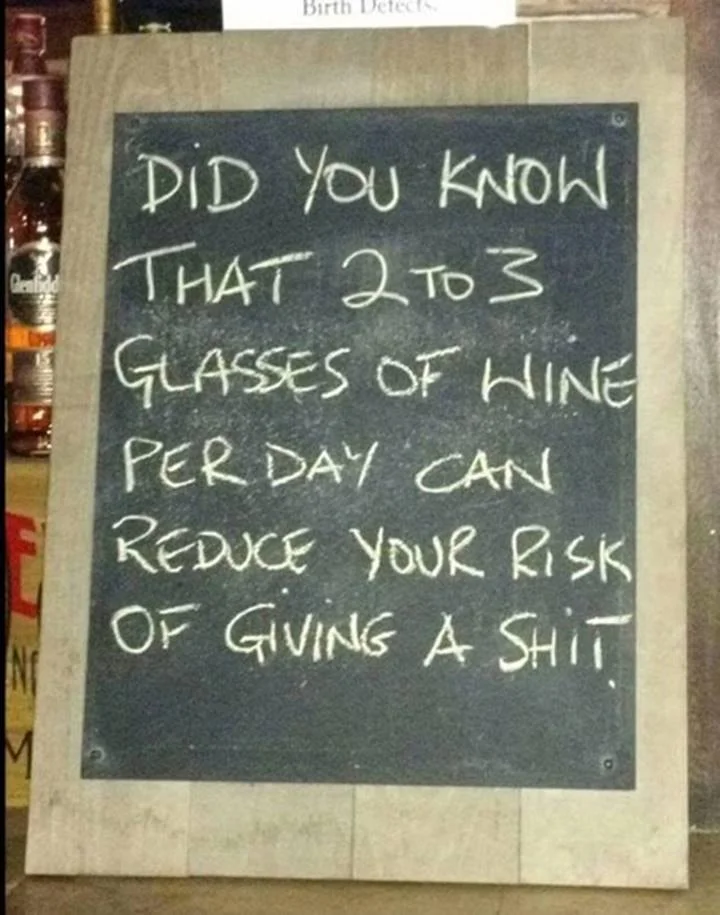 Birth Defects.
DID YOU KNOW
THAT 2 TO 3
GLASSES OF WINE
PER DAY CAN
REDUCE YOUR RISK
OF GIVING A SHIT.
Glenfidd
15
E
M